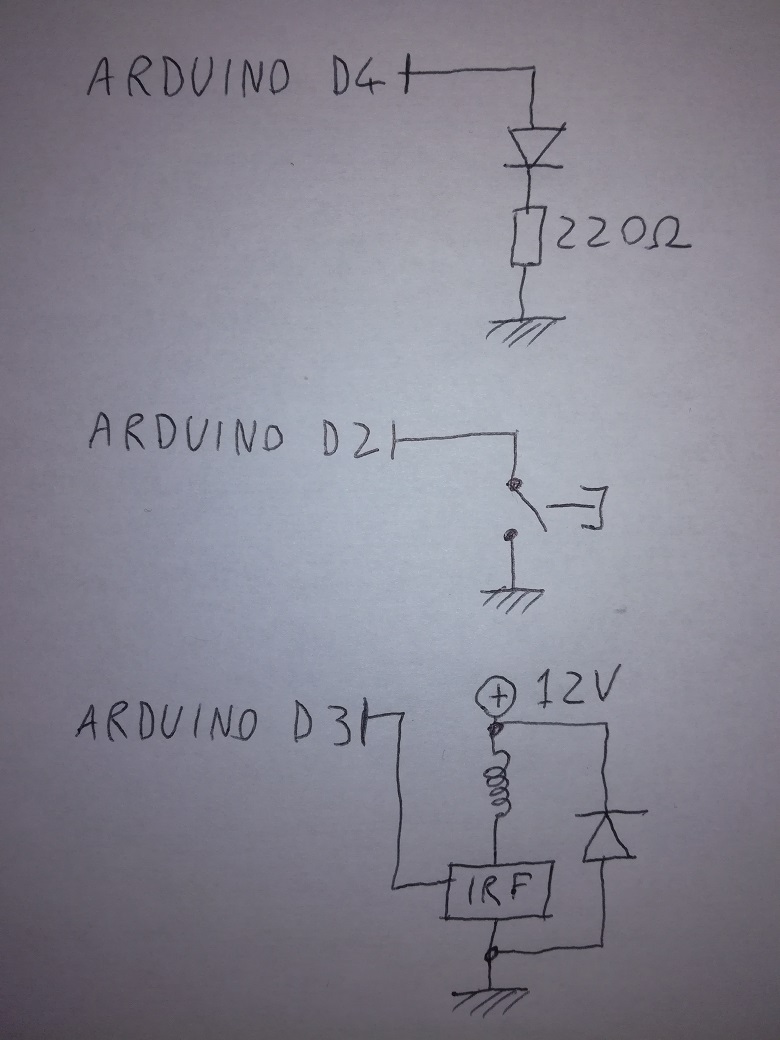 ARDUINO D4
220Ω
ARDUINO D2
+ 12V
ARDUINO D3
IRF